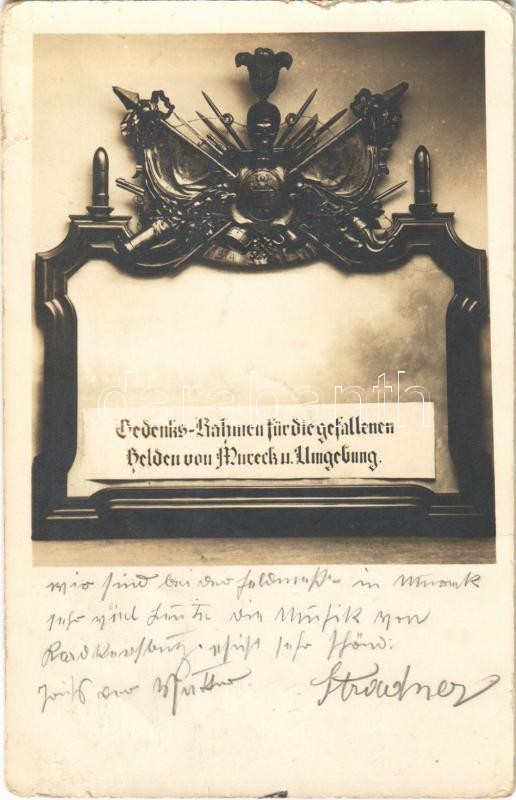 Gedenks-Rahmen für die gefallenen
Helden von Mureck u. Umgebung.
wir sind bei der Feldmesse in Mureck
sehr viel Leute die Musik von
Radkersburg sehr schön.
der Mutter. Stradner
darabanth